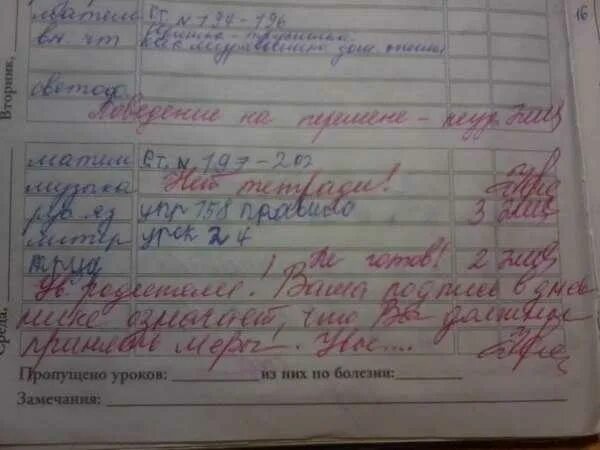 матем ст. N 194-196
вн. чт
16
Вторник,
светоф.
Поведение на перемене - неуд
матем ст. N 197-202
музыка Нет тетради!
рус яз упр 158 правило 3
литер урок 24
труд Не готов! 2
Ув родители! Ваша подпись в днев
нике означает, что Вы должны
принимать меры. Увы....
Среда,
Пропущено уроков: из них по болезни:
Замечания: